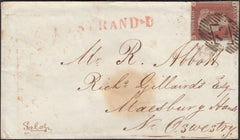 STRAND-D
Mr. R. Abbott
Richd Gillards Esq
Maesbury Hall
Nr. Oswestry
Salop